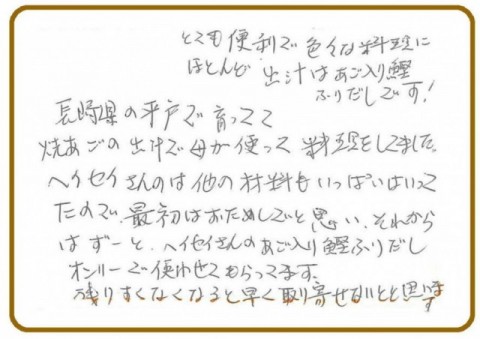 とても便利で色々な料理に
ほとんど出汁はあご入り鰹
ふりだしです!
長崎県の平戸で育ってて
焼あごの出汁で母が使って料理をしてました。
ヘイセイさんのは他の材料もいっぱいはいって
たので、最初はおためしでと思い、それから
はずーと、ヘイセイさんのあご入り鰹ふりだし
オンリーで使わせてもらってます。
残りすくなくなると早く取り寄せないとと思います